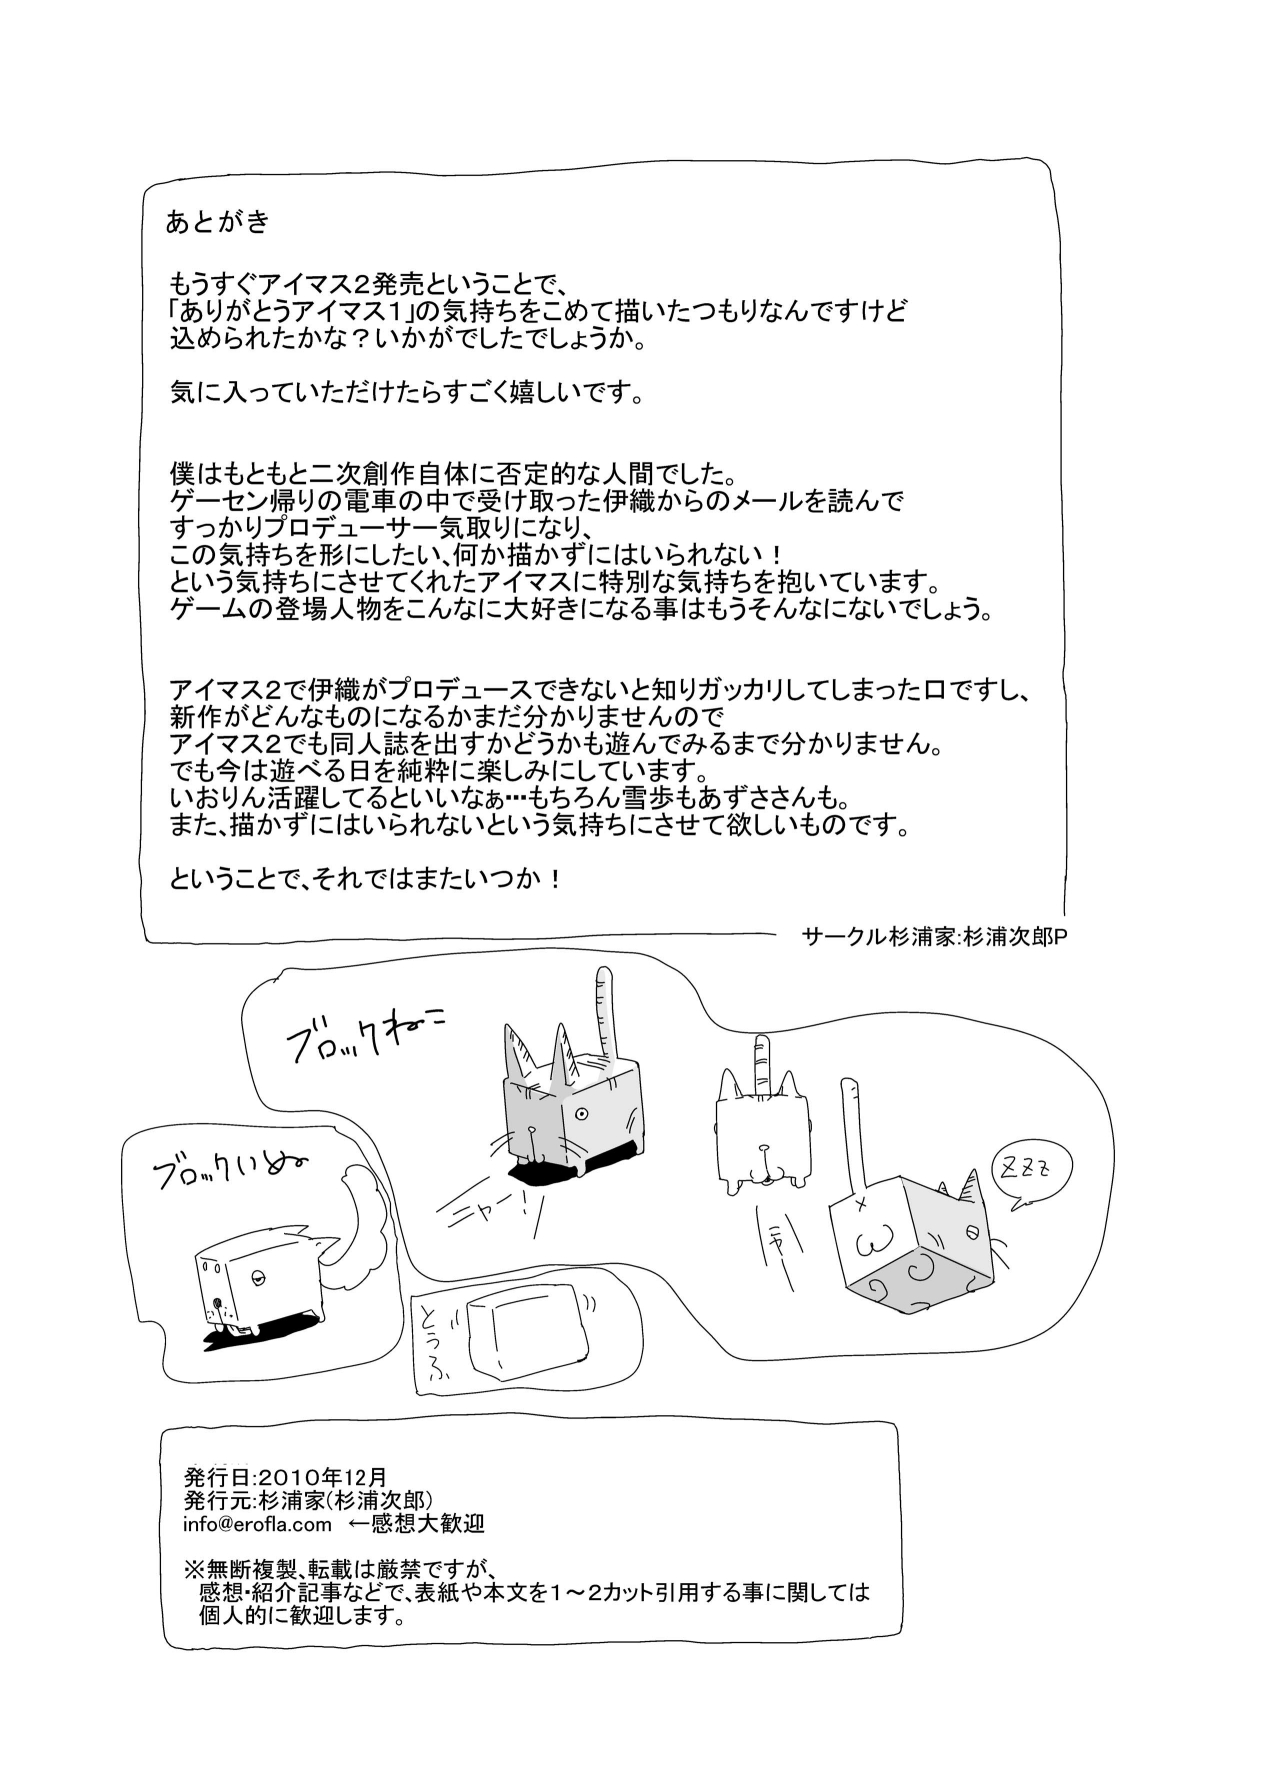 あとがき
もうすぐアイマス2発売ということで、
「ありがとうアイマス1」の気持ちをこめて描いたつもりなんですけど
込められたかな？いかがでしたでしょうか。
気に入っていただけたらすごく嬉しいです。
僕はもともと二次創作自体に否定的な人間でした。
ゲーセン帰りの電車の中で受け取った伊織からのメールを読んで
すっかりプロデューサー気取りになり、
この気持ちを形にしたい、何か描かずにはいられない！
という気持ちにさせてくれたアイマスに特別な気持ちを抱いています。
ゲームの登場人物をこんなに大好きになる事はもうそんなにないでしょう。
アイマス2で伊織がプロデュースできないと知りガッカリしてしまった口ですし、
新作がどんなものになるかまだ分かりませんので
アイマス2でも同人誌を出すかどうかも遊んでみるまで分かりません。
でも今は遊べる日を純粋に楽しみにしています。
いおりん活躍してるといいなぁ…もちろん雪歩もあずささんも。
また、描かずにはいられないという気持ちにさせて欲しいものです。
ということで、それではまたいつか！
サークル杉浦家:杉浦次郎P
ブロックねこ
ニャー！
ZZZ
ブロックいぬ
とうふ
発行日:2010年12月
発行元:杉浦家(杉浦次郎)
info@erofla.com ←感想大歓迎
※無断複製、転載は厳禁ですが、
感想・紹介記事などで、表紙や本文を1～2カット引用する事に関しては
個人的に歓迎します。